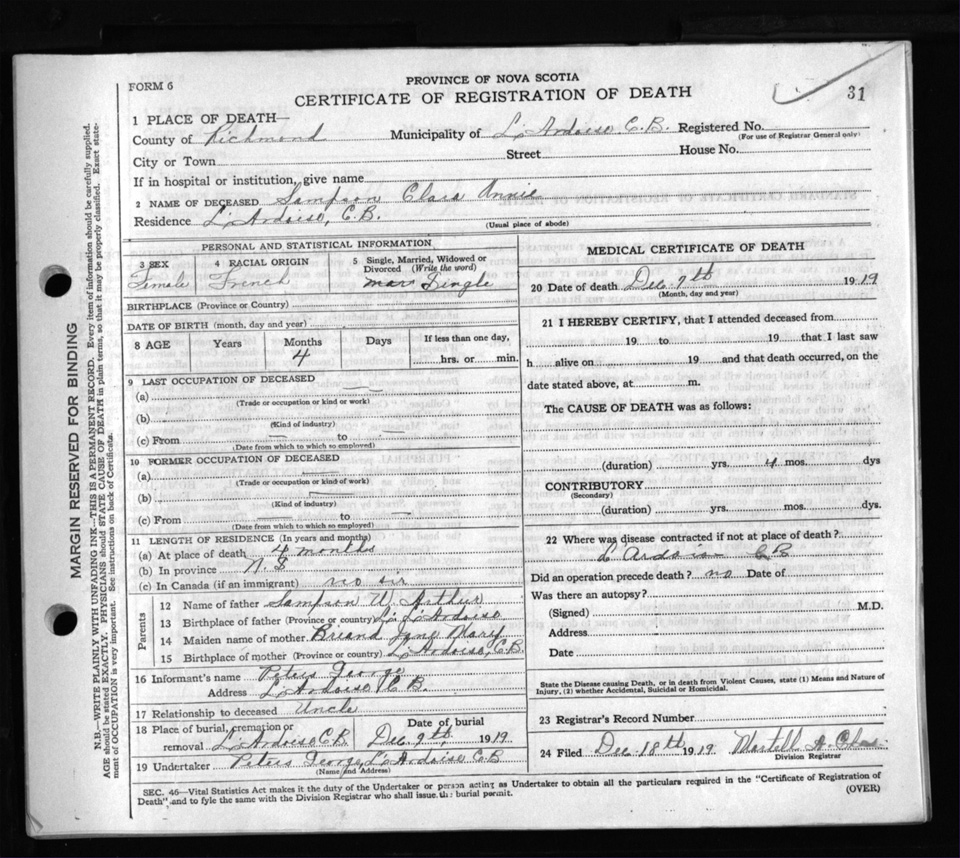 FORM 6
PROVINCE OF NOVA SCOTIA
CERTIFICATE OF REGISTRATION OF DEATH
31
1 PLACE OF DEATH—
County of Richmond Municipality of L'Ardoise C.B. Registered No.
(For use of Registrar General only)
City or Town Street House No.
If in hospital or institution, give name
2 NAME OF DECEASED Sampson Clara Annie
Residence L'Ardoise, C.B.
(Usual place of abode)
PERSONAL AND STATISTICAL INFORMATION
3 SEX Female
4 RACIAL ORIGIN French
5 Single, Married, Widowed or Divorced (Write the word) Single
BIRTHPLACE (Province or Country)
DATE OF BIRTH (month, day and year)
8 AGE Years Months 4 Days If less than one day, hrs. or min.
9 LAST OCCUPATION OF DECEASED
(a)
(Trade or occupation or kind or work)
(b)
(Kind of industry)
(c) From to
(Date from which to which so employed)
10 FORMER OCCUPATION OF DECEASED
(a)
(Trade or occupation or kind of work)
(b)
(Kind of industry)
(c) From to
(Date from which to which so employed)
11 LENGTH OF RESIDENCE (In years and months)
(a) At place of death 4 months
(b) In province N.S
(c) In Canada (if an immigrant) no sir
Parents
12 Name of father Sampson W. Arthur
13 Birthplace of father (Province or country) L'Ardoise
14 Maiden name of mother Briand Jane Mary
15 Birthplace of mother (Province or country) L'Ardoise, C.B.
16 Informant's name Peters George
Address L'Ardoise C.B.
17 Relationship to deceased Uncle
18 Place of burial, cremation or removal L'Ardoise C.B. Date of burial Dec. 9th, 1919
19 Undertaker Peters George, L'Ardoise C.B
(Name and Address)
MEDICAL CERTIFICATE OF DEATH
20 Date of death Dec. 7th 1919
(Month, day and year)
21 I HEREBY CERTIFY, that I attended deceased from
19 to 19 that I last saw
h alive on 19 and that death occurred, on the
date stated above, at m.
The CAUSE OF DEATH was as follows:
(duration) yrs. 4 mos. dys
CONTRIBUTORY
(Secondary)
(duration) yrs. mos. dys.
22 Where was disease contracted if not at place of death?
L'Ardoise CB
Did an operation precede death? no Date of
Was there an autopsy?
(Signed) M.D.
Address
Date
State the Disease causing Death, or in death from Violent Causes, state (1) Means and Nature of
Injury, (2) whether Accidental, Suicidal or Homicidal.
23 Registrar's Record Number
24 Filed Dec 18th 1919 Martell A. Chas
Division Registrar
SEC. 46—Vital Statistics Act makes it the duty of the Undertaker or person acting as Undertaker to obtain all the particulars required in the "Certificate of Registration of
Death" and to fyle the same with the Division Registrar who shall issue the burial permit.
(OVER)
MARGIN RESERVED FOR BINDING
N.B.—WRITE PLAINLY WITH UNFADING INK—THIS IS A PERMANENT RECORD. Every item of information should be carefully supplied.
AGE should be stated EXACTLY. PHYSICIANS should STATE CAUSE OF DEATH in plain terms, so that it may be properly classified. Exact state-
ment of OCCUPATION is very important. See instructions on back of Certificate.